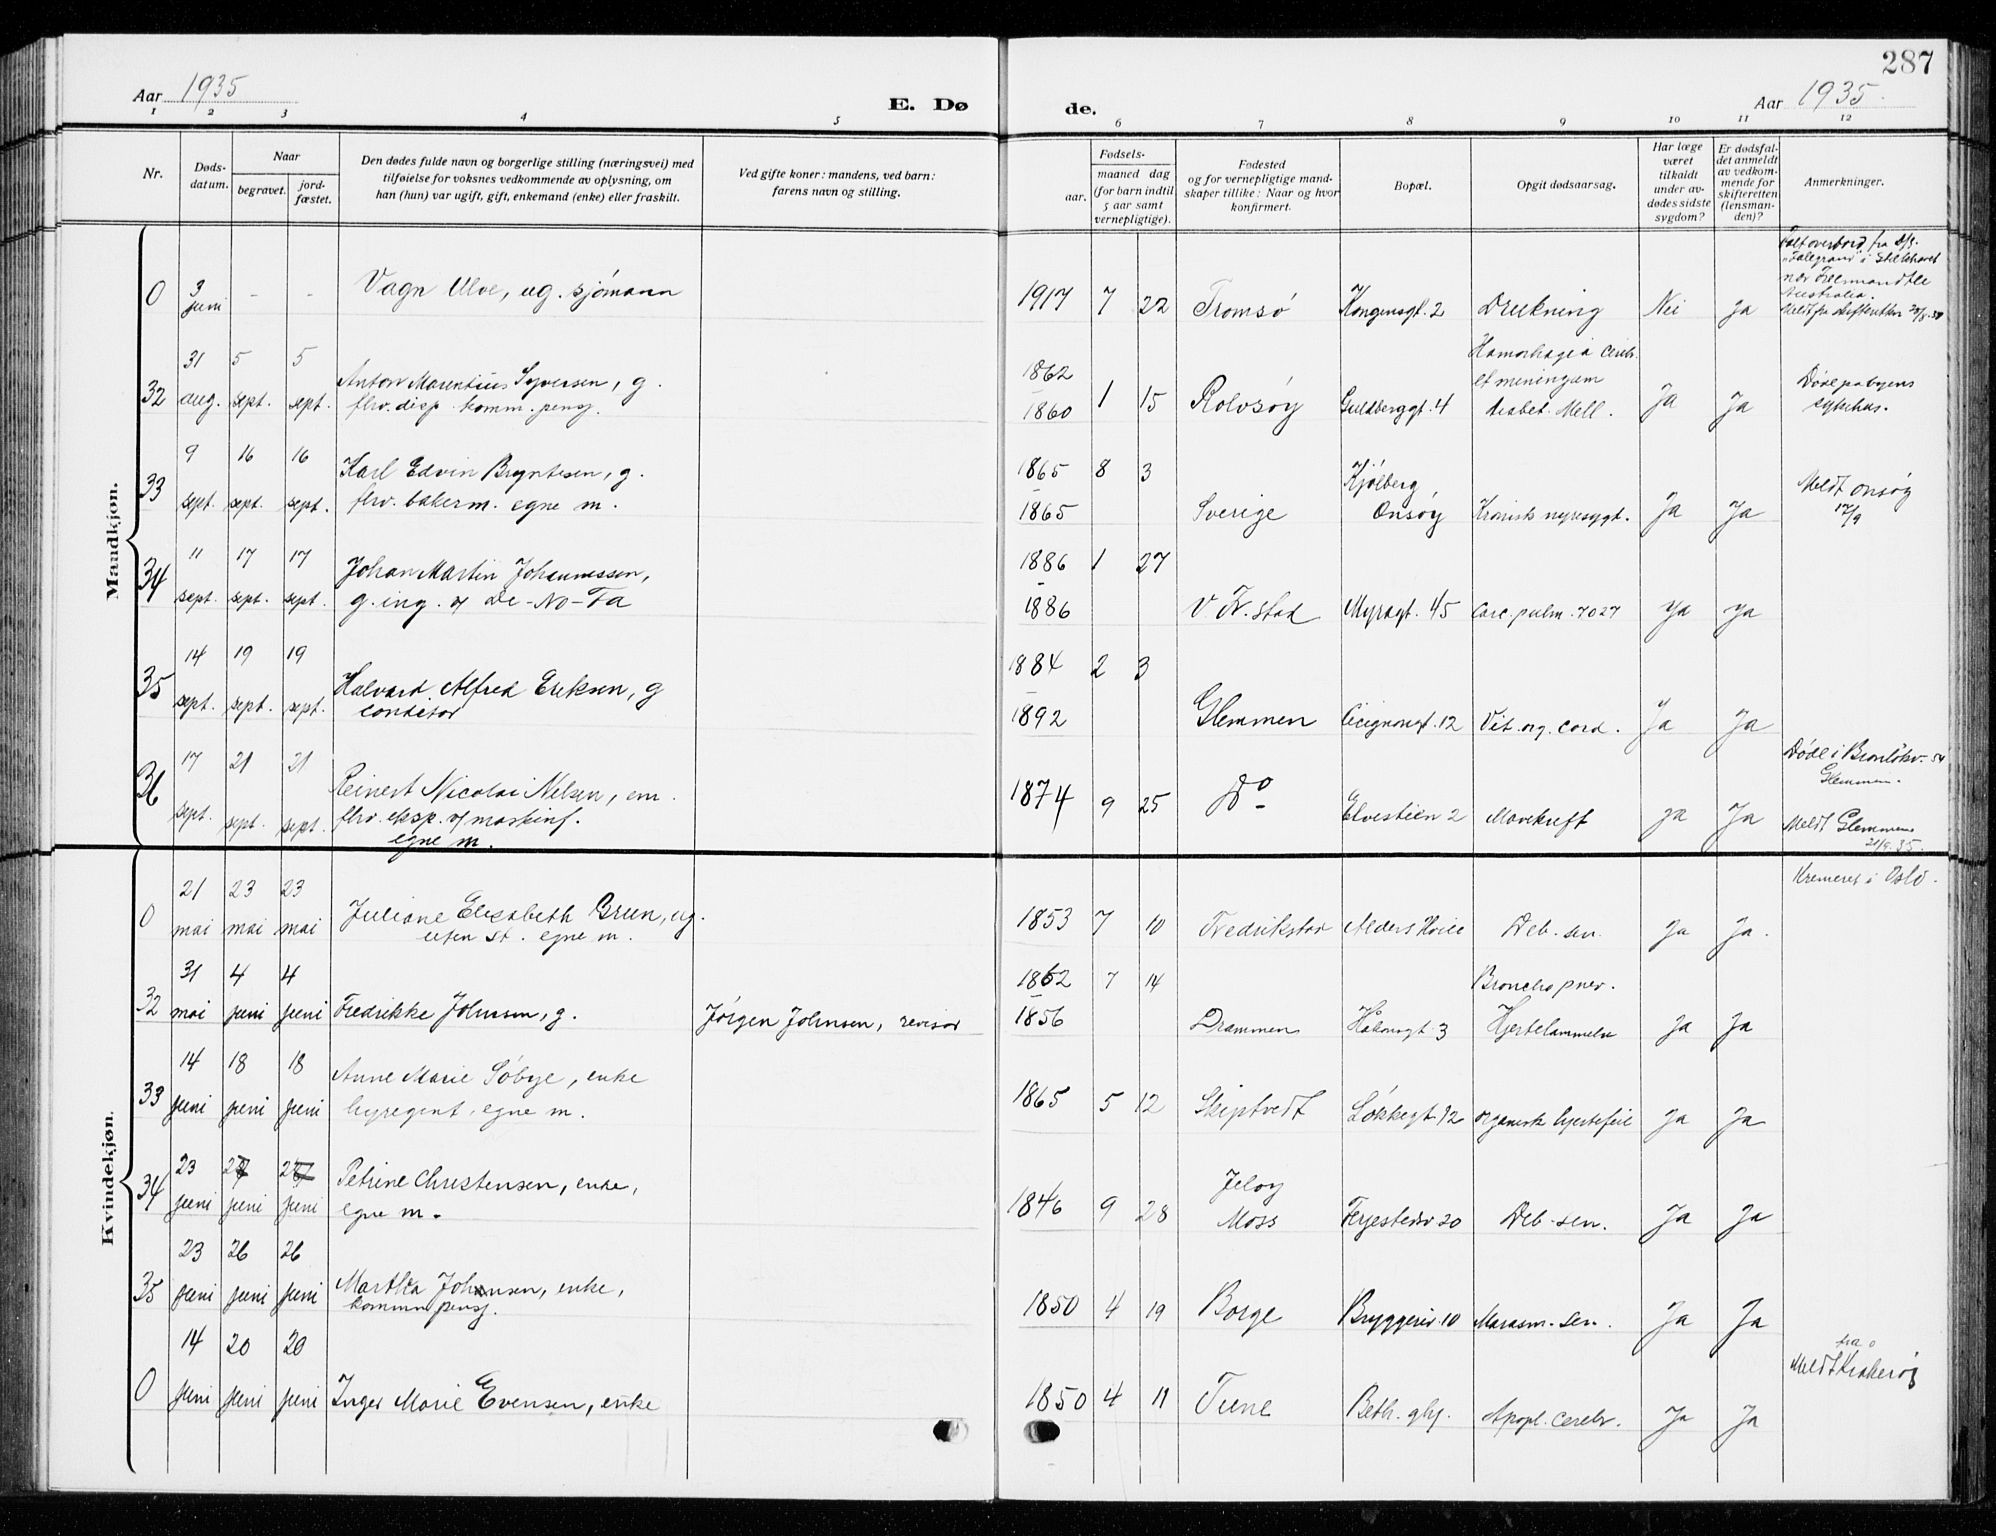 287
Aar 1935
E. Dø
de.
Aar 1935.
1 2 3 4 5 6 7 8 9 10 11 12
Nr.
Døds-
datum.
Naar
begravet.
jord-
fæstet.
Den dødes fulde navn og borgerlige stilling (næringsvei) med
tilføielse for voksnes vedkommende av oplysning, om
han (hun) var ugift, gift, enkemand (enke) eller fraskilt.
Ved gifte koner: mandens, ved barn:
farens navn og stilling.
Fødsels-
aar.
maaned dag
(for barn indtil
5 aar samt
vernepligtige).
Fødested
og for vernepligtige mand-
skaper tillike: Naar og hvor
konfirmert.
Bopæl.
Opgit dødsaarsag.
Har læge
været
tilkaldt
under av-
dødes sidste
sygdom?
Er dødsfal-
det anmeldt
av vedkom-
mende for
skifteretten
(lensman-
den)?
Anmerkninger.
Maadkjøn.
0 3 juni - - Vagn Ulve, ug. sjømann 1917 7 22 Tromsø Kongensgt. 2 Drukning Nei Ja
Falt overbord fra D/S.
Australia.
Meldt fra skifteretten
32 31 aug. 5 sept. 5 sept. Anton Marentius Syversen, g.
fhv. disp. komm. pensj.
1862
1860 1 15 Rolvsøy Guldberggt. 4
et meningam
diabet. Mell. Ja Ja
Døde paa byens
sykehus.
33 9 sept. 16 sept. 16 sept. Karl Edvin Bryntesen, g.
fhv. bakerm. egne m.
1865 8 3
1865 Sverige Kjølberg
Onsøy Kronisk nyresygd. Ja Ja
Meldt Onsøy
17/9
34 11 sept. 17 sept. 17 sept. Johan Martin Johannessen,
g. ing. v/ De-No-Fa
1886 1 27
1886 V. Fr.stad Myragt. 45 Carc. pulm. 7027 Ja Ja
35 14 sept. 19 sept. 19 sept. Halvard Alfred Eriksen, g
conditor
1884 2 3
1892 Glemmen Cicignongt. 12 Vit. org. cord. Ja Ja
36 17 sept. 21 sept. 21 sept. Reinert Nicolai Nelsen, em.
fhv. eksp. v/ maskinf.
egne m.
1874 9 25 Do Elvestien 2 Mavekreft Ja Ja
Glemmen.
Meldt Glemmen
21/9. 35.
Kvindekjøn.
0 21 mai 23 mai 23 mai Juliane Elisabeth Bruun, ug.
uten st. egne m.
1853 7 10 Fredrikstad Alders Hvile Deb. sen. Ja Ja.
Kremeret i Oslo.
32 31 mai 4 juni 4 juni Fredrikke Johnsen, g. Jørgen Johnsen, revisor
1862 7 14
1856 Drammen Haldensgt 3 Bronchopnev.
Hjertelammelse Ja Ja
33 14 juni 18 juni 18 juni Anne Marie Søbye, enke
byregent. egne m.
1865 5 12 Skiptvedt Løkkegt. 12 Organisk hjertefeil Ja Ja
34 23 juni 27 juni 27 juni Petrine Christensen, enke,
egne m.
1846 9 28 Jeløy
Moss Ferjestedsv 20 Deb. sen. Ja Ja
35 23 juni 26 juni 26 juni Martha Johansen, enke,
kommunpensj.
1850 4 19 Borge Bryggeriv. 10 Marasm. sen. Ja Ja
0 14 juni 20 juni 20 juni Inger Marie Evensen, enke
1850 4 11 Tune Beth. ghj. Apopl. cerebr. Ja Ja
fra
Meldt Kråkerøy